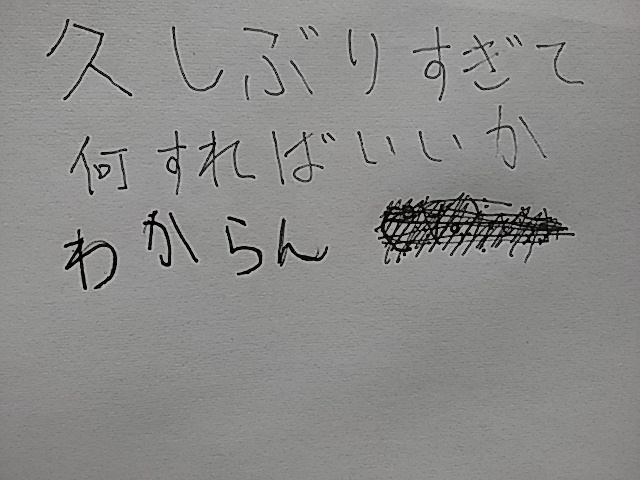 久しぶりすぎて
何すればいいか
わからん